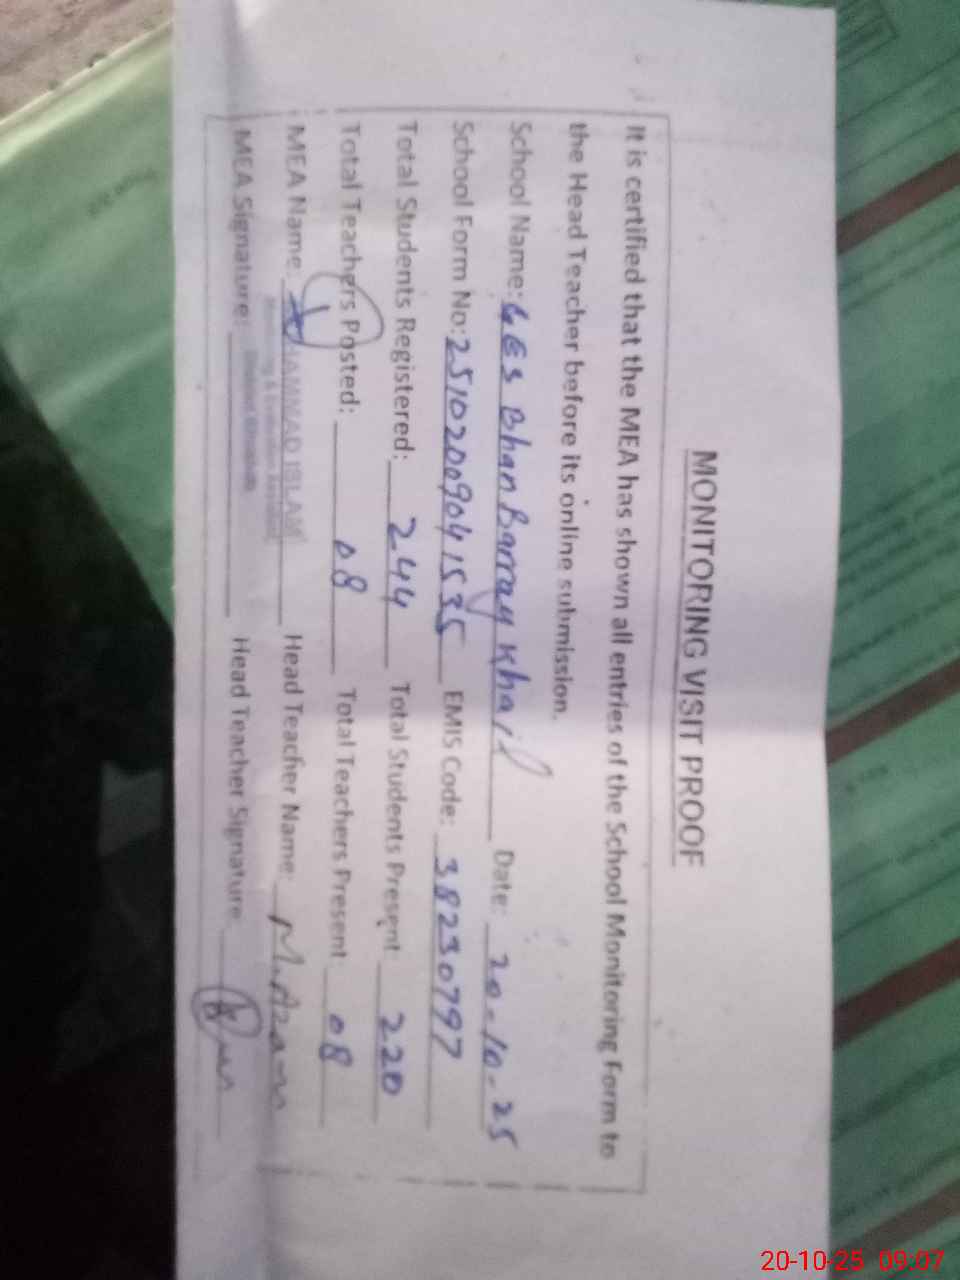 MONITORING VISIT PROOF
It is certified that the MEA has shown all entries of the School Monitoring Form to
the Head Teacher before its online submission.
School Name: GES Bhan Barray Khail Date: 20-10-25
School Form No: 25102009041535 EMIS Code: 38230797
Total Students Registered: 244 Total Students Present: 220
Total Teachers Posted: 08 Total Teachers Present: 08
MEA Name: MUHAMMAD ISLAM Head Teacher Name: M. Azam
Monitoring & Evaluation Assistant
MEA Signature: Head Teacher Signature
20-10-25 09:07